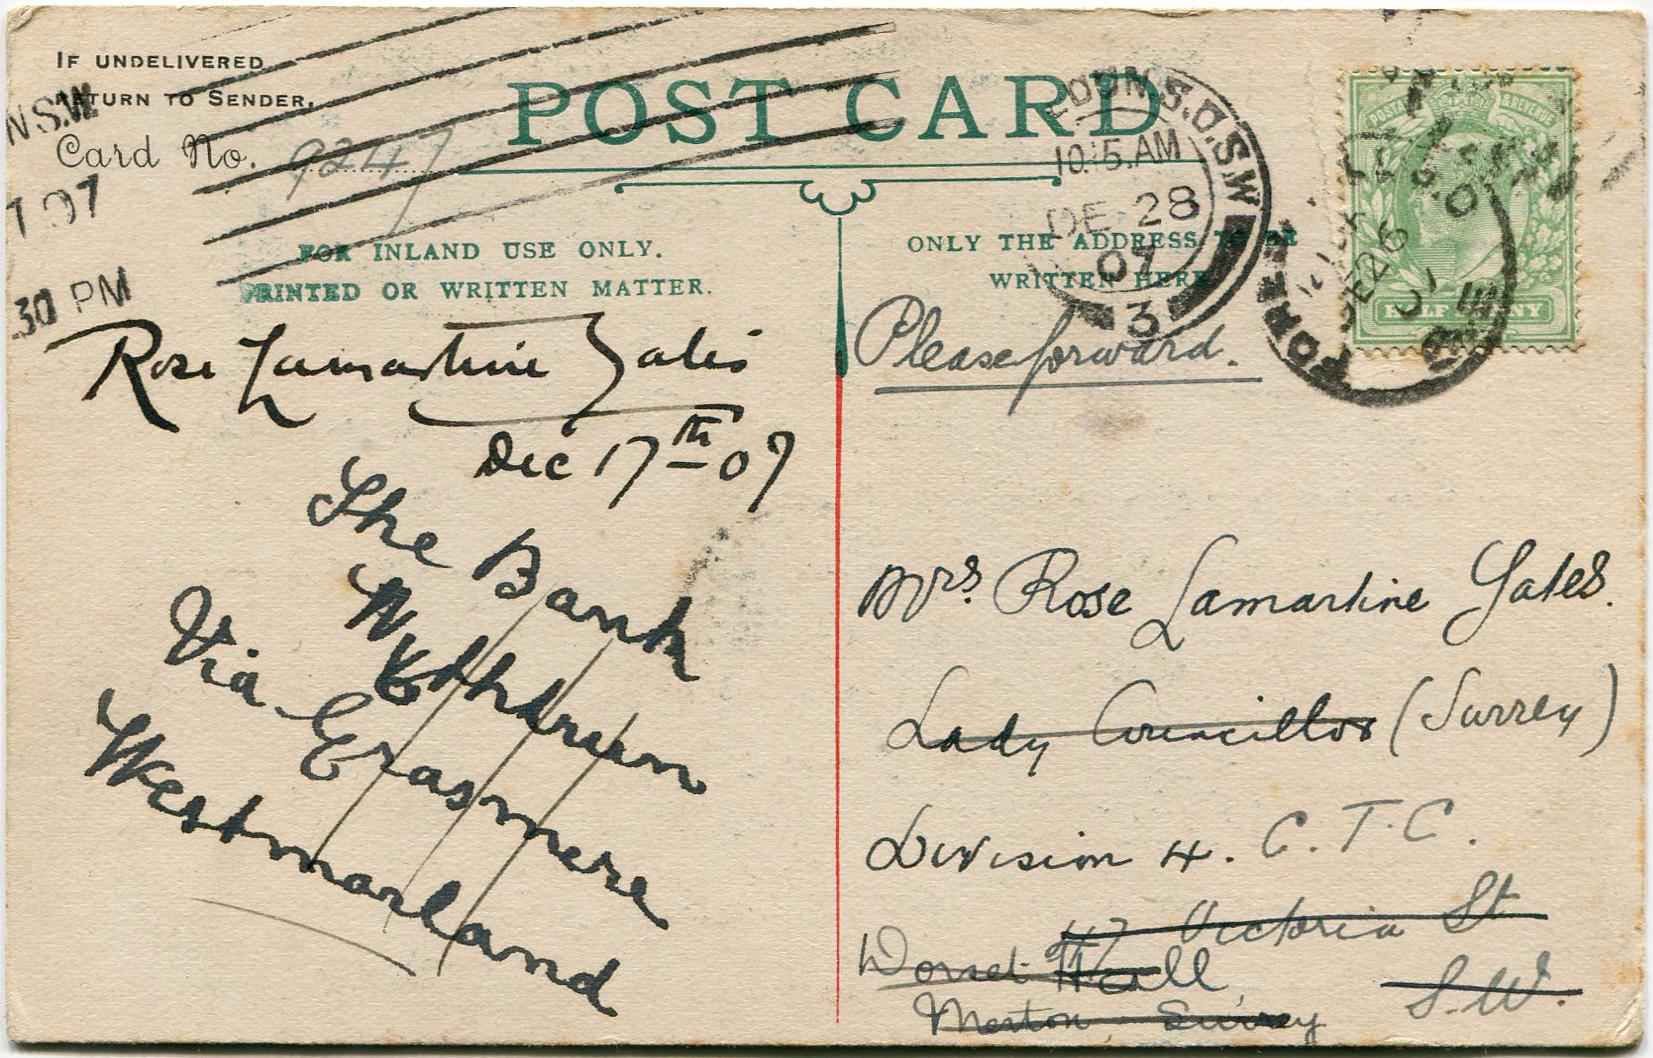 IF UNDELIVERED
RETURN TO SENDER.
N.S.W.
Card No. 9247
7 07
30 PM
POST CARD
FOR INLAND USE ONLY.
PRINTED OR WRITTEN MATTER.
Rose Lamartine Yates
Dec 17th 07
The Bank
Wythburn
Via Grasmere
Westmorland
LONDON. S.O. S.W
10.15.AM
DE 28
07
3
ONLY THE ADDRESS TO BE
WRITTEN HERE
POSTAGE & REVENUE
HALF PENNY
DE 26
07
Please forward.
Mrs. Rose Lamartine Yates.
Lady Councillor (Surrey)
Division 4. C. T. C.
47 Victoria St
S.W.
Dorset Hall,
Merton, Surrey